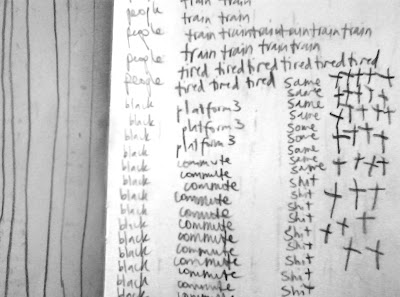 people train train
people train traintraintraintraintrain
people train train train train
tired tired tired tired tired tired
people tired tired tired same
same
black platform 3 same
same
black platform 3 some
black platform 3 same
black same
black commute same
black commute shit
black commute shit
black commute shit
black commute shit
black commute shit
black commute shit
black commute shit
black commute shit
black commute shit